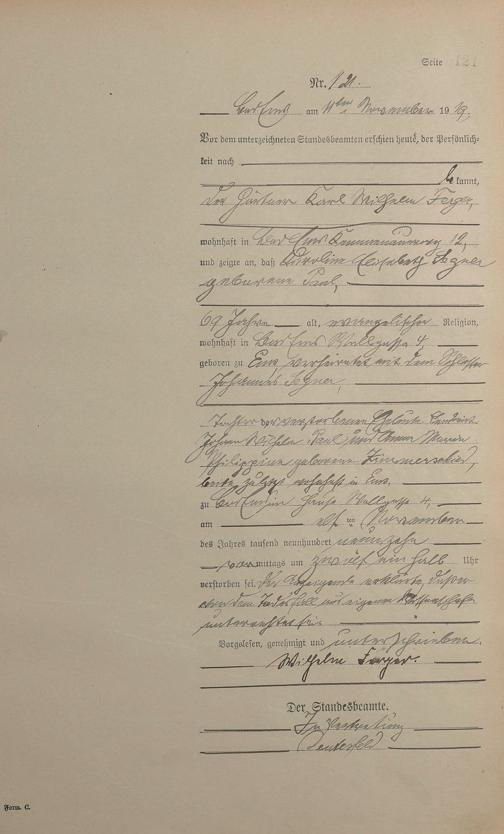 Seite 121
Nr. 121.
Bad Ems am 11ten November 1919.
Vor dem unterzeichneten Standesbeamten erschien heute, der Persönlich-
keit nach
bekannt,
der Gärtner Karl Wilhelm
wohnhaft in Bad Ems 12,
und zeigte an, daß Karoline Elisabeth
geborene Paul,
69 Jahre alt, evangelischer Religion,
wohnhaft in Bad Ems Wallgasse 4,
geboren zu Ems, verheiratet mit dem Schlosser
Johannes
Tochter der verstorbenen Eheleute Landwirt
Johann Wilhelm Paul und Anna Maria
Philippine geborene Zimmerschied,
beide zuletzt wohnhaft in Ems,
zu Bad Ems im Hause Wallgasse 4,
am elften November
des Jahres tausend neunhundert neunzehn
vormittags um zwölf ein halb Uhr
verstorben sei. Der Anzeigende erklärte, daß er
von dem Todesfall aus eigener Wissenschaft
unterrichtet sei.
Vorgelesen, genehmigt und unterschrieben.
Wilhelm
Der Standesbeamte.
In Vertretung
Form. C.